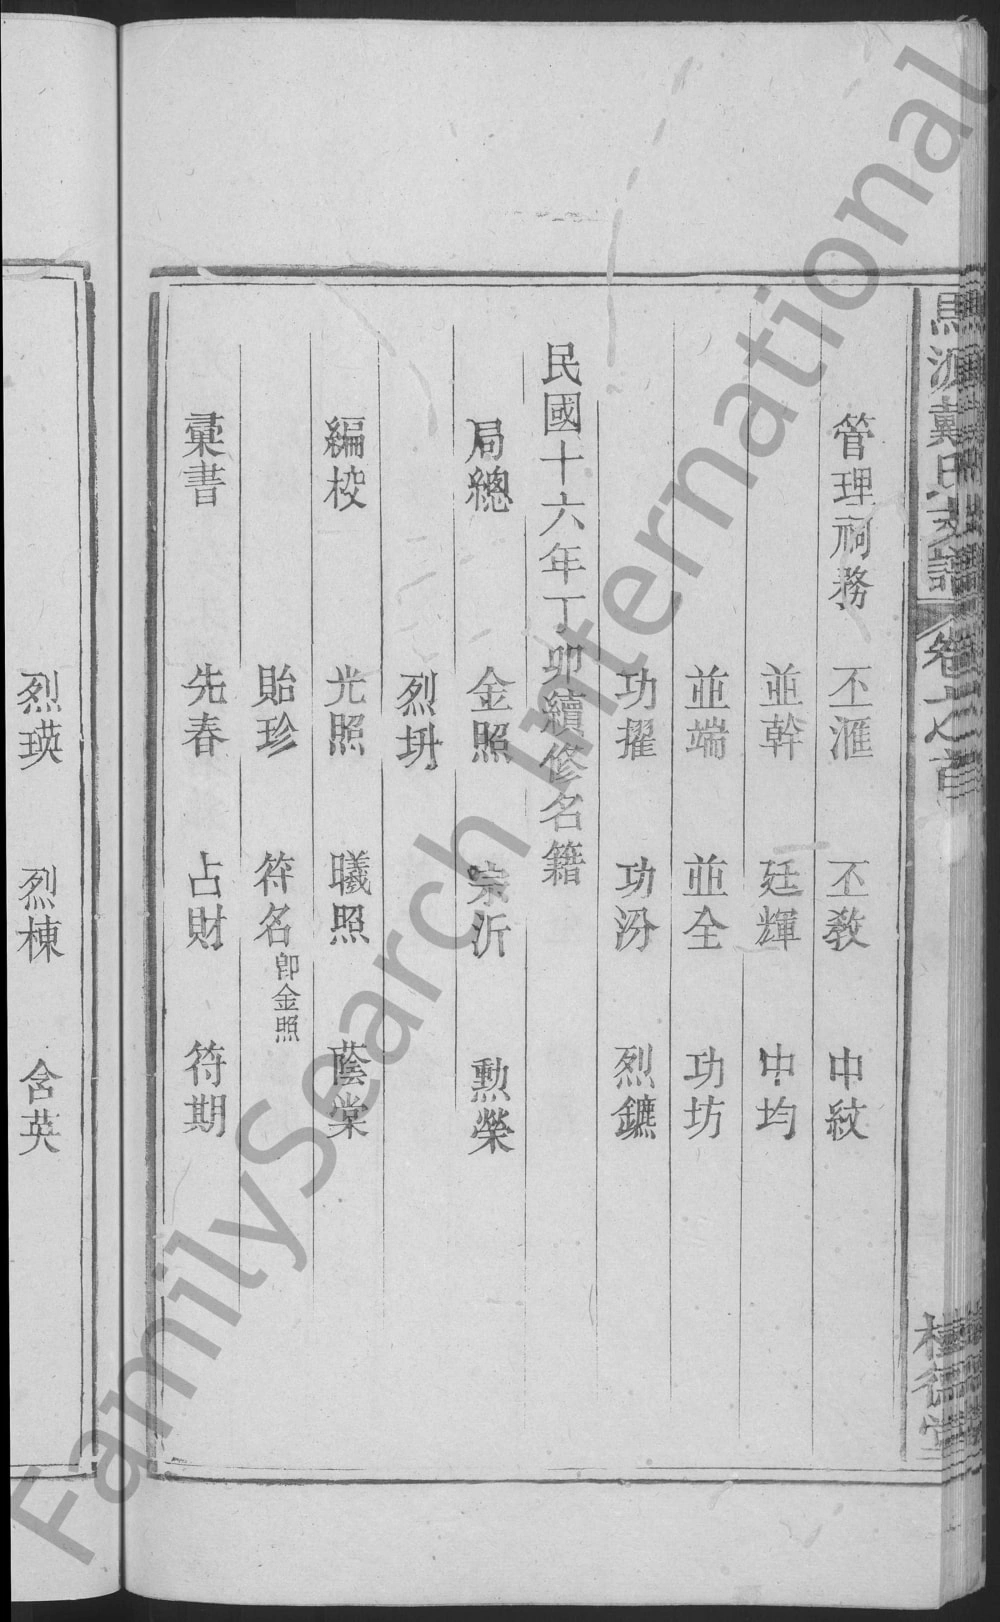 戴氏支譜
卷之首
管理祠務 丕滙 丕教 中紋
並幹 廷輝 中均
並端 並全 功坊
功擢 功汾 烈鑣
民國十六年丁卯續修名籍
局總 金照 宗沂 勲榮
烈坍
編校 光照 曦照 蔭棠
貽珍 符名 卽金照
彙書 先春 占財 符期
烈瑛 烈棟 含英
FamilySearch International